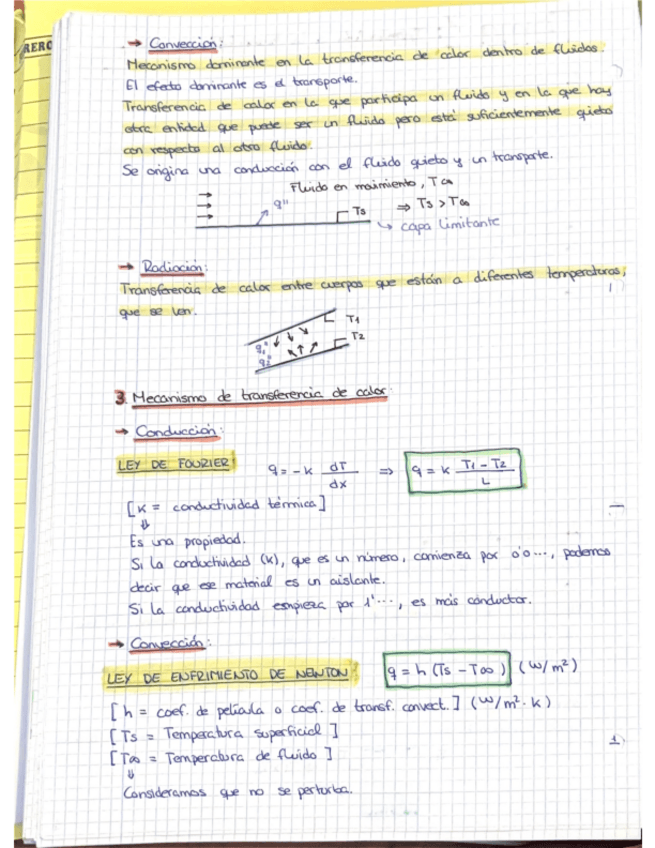 RERO
→ Convección:
Mecanismo dominante en la transferencia de calor dentro de fluidos.
El efecto dominante es el transporte.
Transferencia de calor en la que participa un fluido y en la que hay
otra entidad que puede ser un fluido pero está suficientemente quieto
con respecto al otro fluido.
Se origina una conducción con el fluido quieto y un transporte.
Fluido en movimiento, T∞
q" Ts ⇒ Ts > T∞
↳ capa limitante
→ Radiación:
Transferencia de calor entre cuerpos que están a diferentes temperaturas,
que se ven.
T1
q1" T2
q2"
3. Mecanismo de transferencia de calor:
→ Conducción:
LEY DE FOURIER: q = -k dT/dx ⇒ q = k (T1 - T2)/L
[k = conductividad térmica]
⇓
Es una propiedad.
Si la conductividad (k), que es un número, comienza por 0'0..., podemos
decir que ese material es un aislante.
Si la conductividad empieza por 1'..., es más conductor.
→ Convección:
LEY DE ENFRIMIENTO DE NEWTON: q = h (Ts - T∞) (W/m²)
[h = coef. de película o coef. de transf. convect.] (W/m²·k)
[Ts = Temperatura superficial]
[T∞ = Temperatura de fluido]
⇓
Consideramos que no se perturba.
1